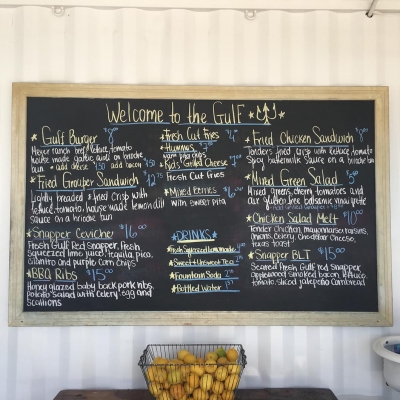 Welcome to the Gulf
Gulf Burger $8
Meyer ranch beef, lettuce, tomato
house made garlic aioli on brioche
bun + add cheese .50 add bacon 1.50
Fried Grouper Sandwich $12.75
Lightly breaded + fried crisp with
lettuce, tomato, house made lemon dill
sauce on a brioche bun
Snapper Ceviche $16.00
Fresh Gulf red snapper, fresh
squeezed lime juice, tequila, pico,
cilantro and purple corn chips
BBQ Ribs $15.00
Honey glazed baby back pork ribs,
potato salad with celery, egg and
scallions
Fresh Cut Fries
Hummus
warm pita chips
Kids Grilled Cheese
Fresh Cut Fries
Mixed Berries
with sweet pita
DRINKS
Fresh Squeezed Lemonade
Sweet + Unsweet Tea
Fountain Soda
Bottled Water
Fried Chicken Sandwich
Tenders fried crisp with lettuce, tomato
spicy buttermilk sauce on a brioche bun
Mixed Green Salad
Mixed greens, cherry tomatoes and
our gluten free balsamic vinaigrette
Chicken Salad Melt
Tender chicken, mayonnaise, raisins,
onions, celery, cheddar cheese,
texas toast
Snapper BLT $15.00
Seared fresh Gulf red snapper
applewood smoked bacon, lettuce,
tomato, sliced jalapeño cornbread